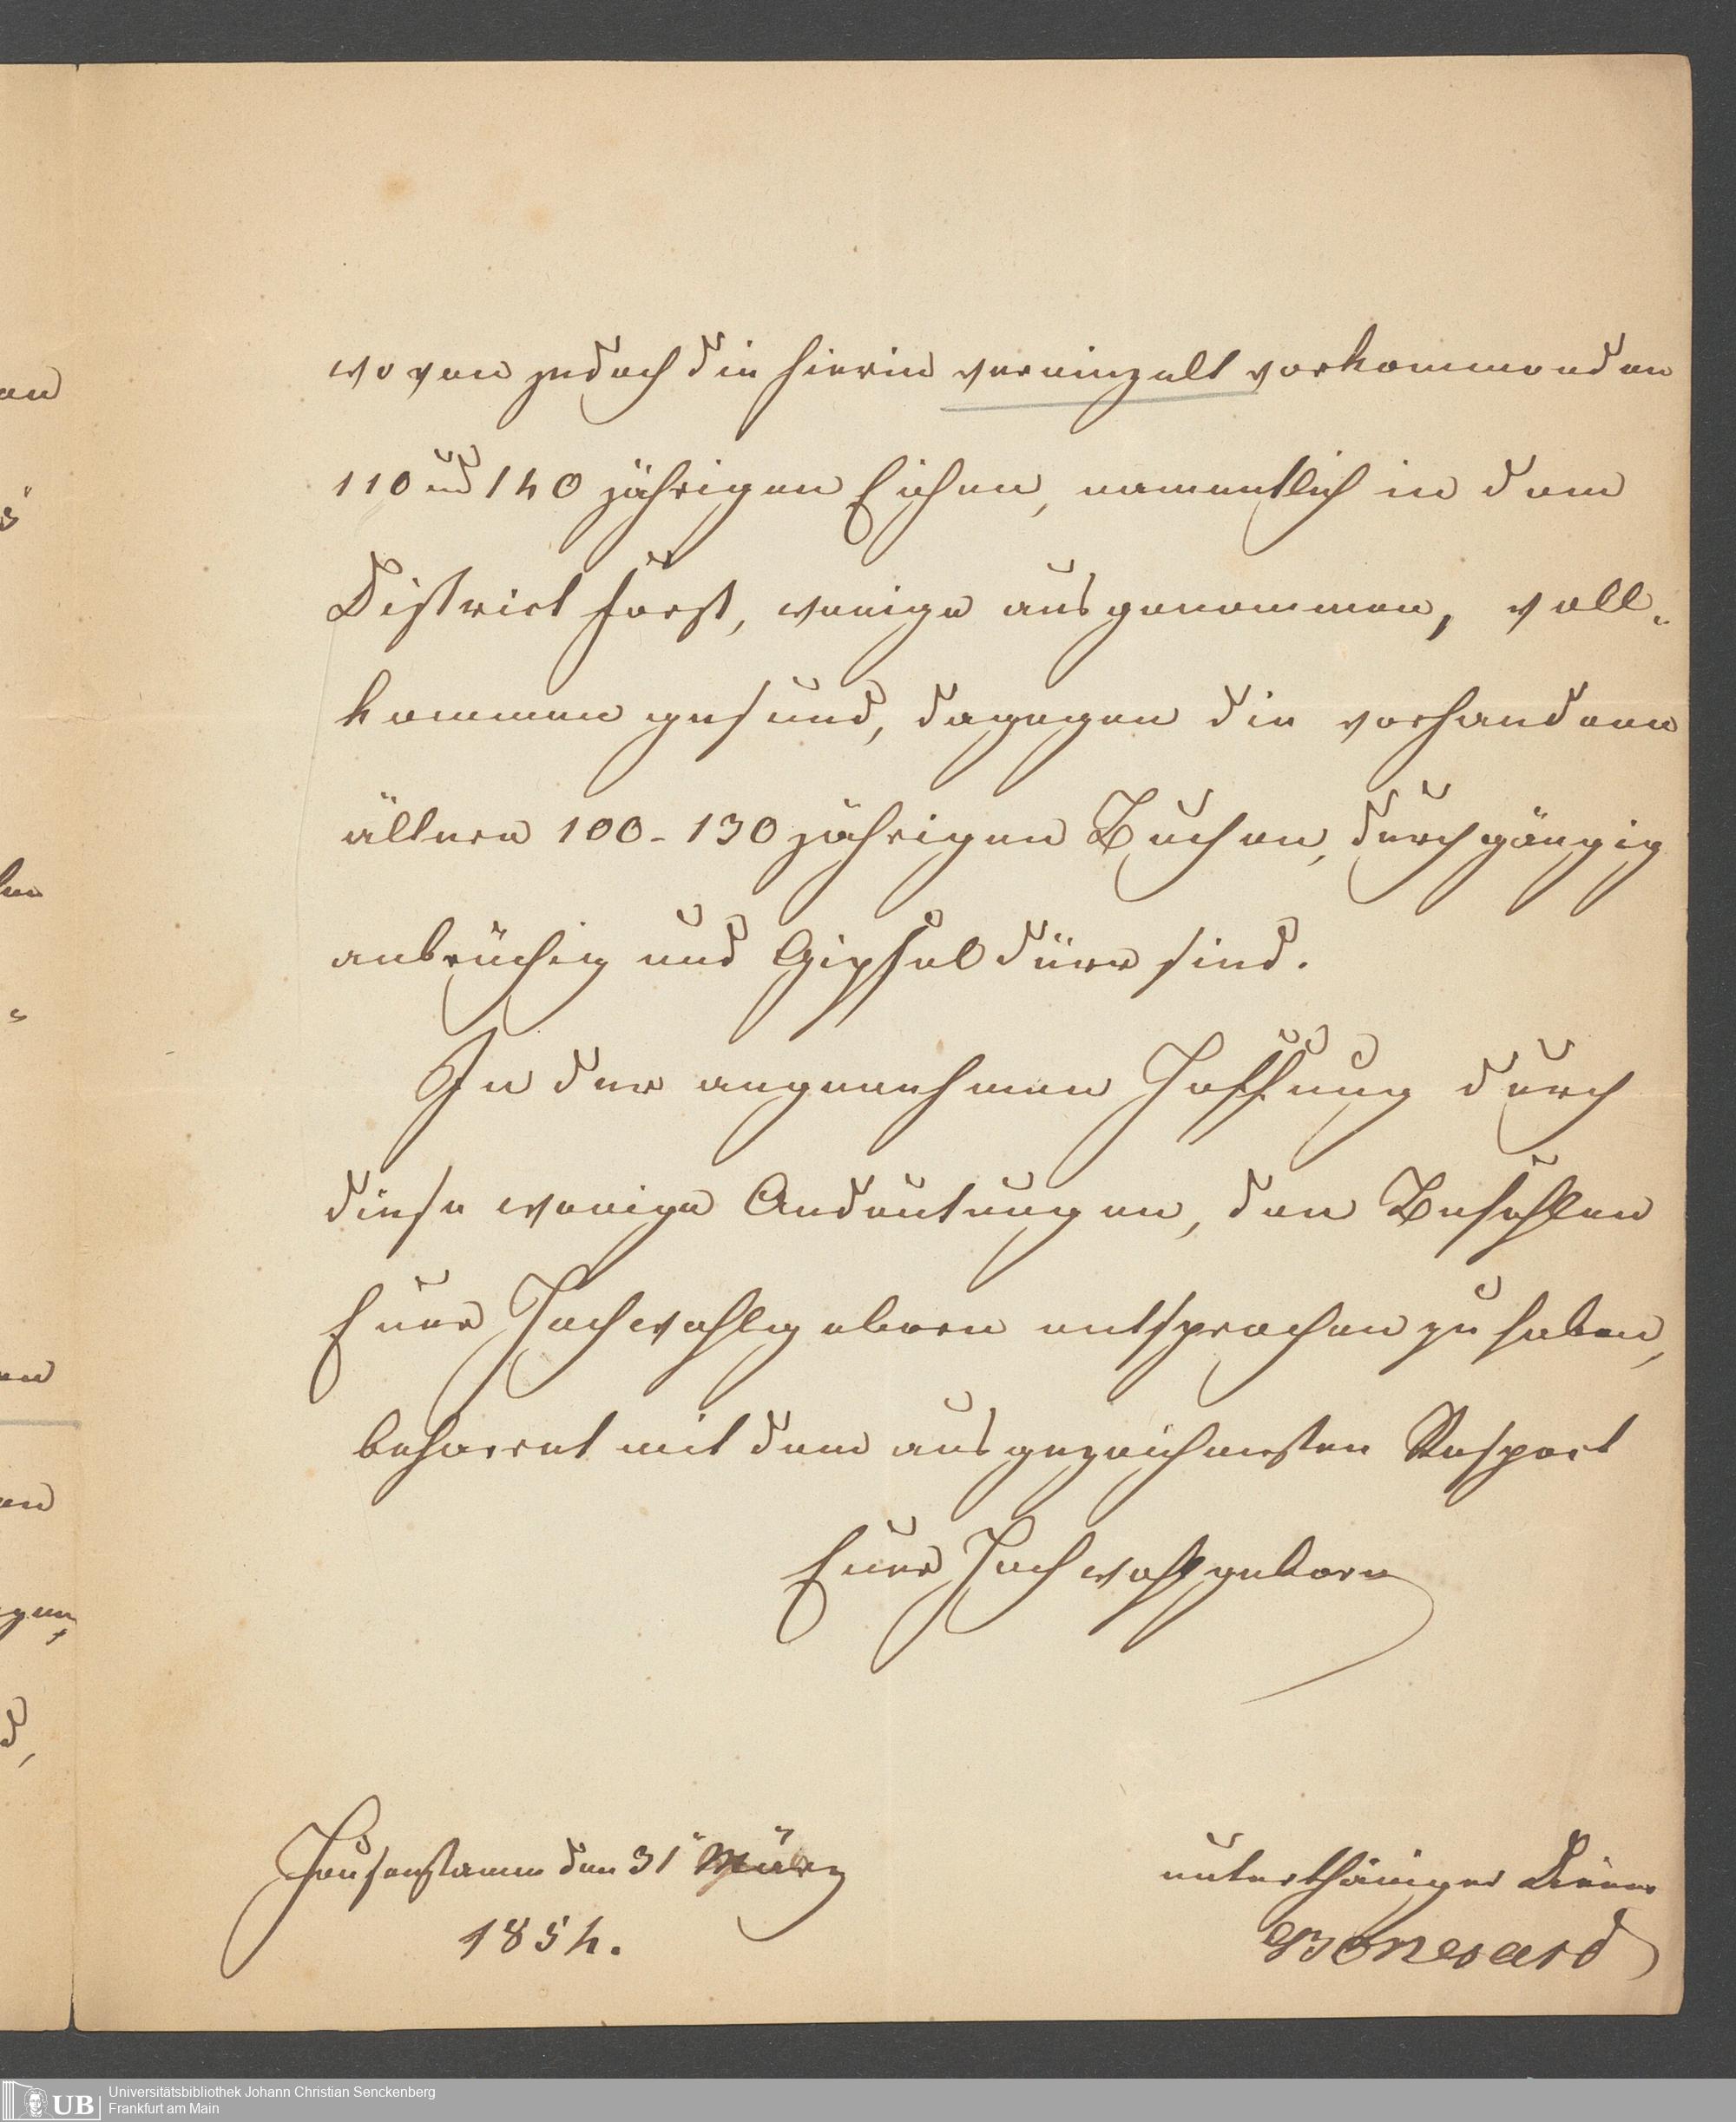 wovon jedoch die hierin vereinzelt vorkommenden
110 und 140 jährigen Eichen, namentlich in dem
District Forst, wenige ausgenommen, voll-
kommen gesund, dagegen die vorhandenen
ältern 100-130 jährigen Buchen, durchgängig
anbrüchig und Gipfeldürr sind.
In der angenehmen Hoffnung durch
diese wenige Andeutungen, den Befehlen
Euer Hochwohlgeborn entsprochen zu haben,
beharret mit dem ausgezeichnesten Respect
Euer Hochwohlgeborn
Heusenstamm den 31" März
1854.
unterthäniger Diener
Bonesard
UB
Universitätsbibliothek Johann Christian Senckenberg
Frankfurt am Main